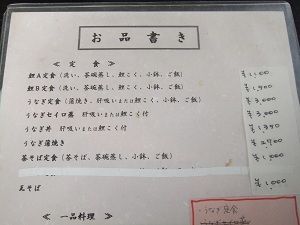 お品書き
≪ 定 食 ≫
鯉A定食（洗い、茶碗蒸し、鯉こく、小鉢、ご飯）
鯉B定食（洗い、茶碗蒸し、鯉こく、ご飯）
うなぎ定食（蒲焼き、肝吸いまたは鯉こく、小鉢、ご飯） ¥3,000
うなぎセイロ蒸 肝吸いまたは鯉こく付 ¥3,000
うなぎ丼 肝吸いまたは鯉こく付
うなぎ蒲焼き
茶そば定食（茶そば、茶碗蒸し、小鉢、ご飯）
瓦そば ¥1,000
≪ 一品料理 ≫
うなぎ定食
うなぎセイロ蒸